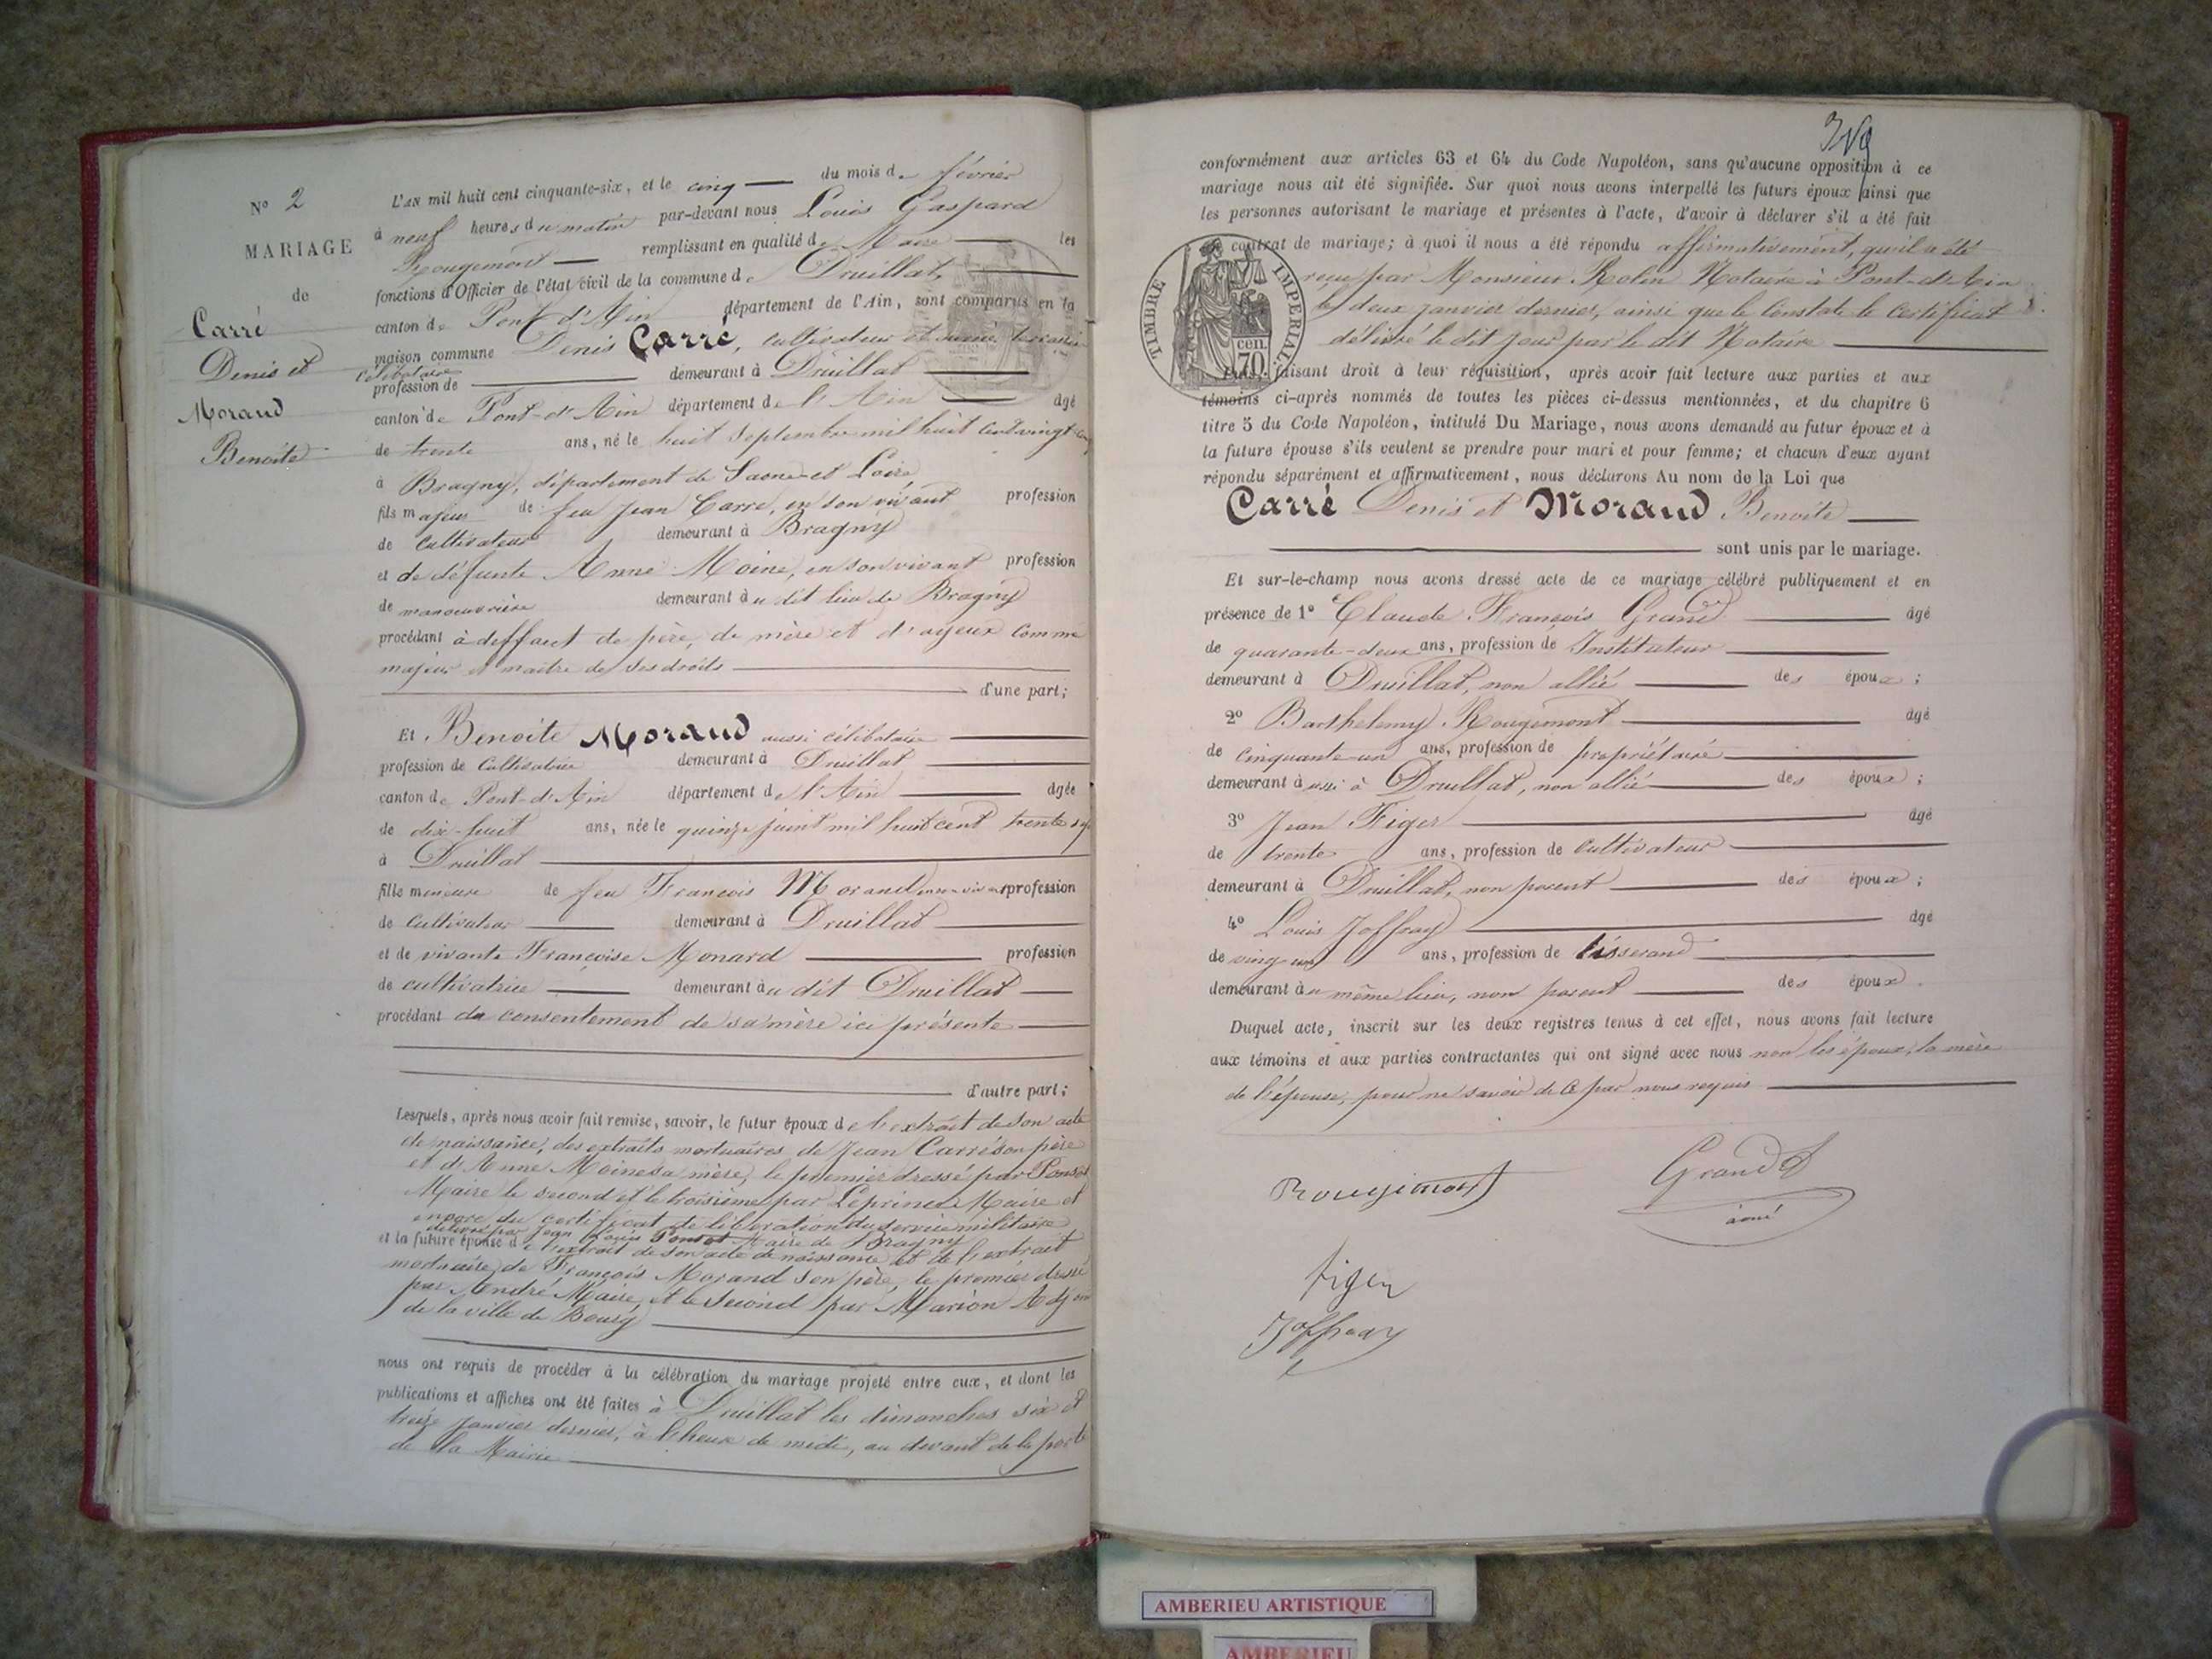 N° 2
MARIAGE
de
Carré
Denis et
Morand
Benoite
L'AN mil huit cent cinquante-six, et le cinq du mois de février
à neuf heures du matin par-devant nous Louis Gaspard
Rougemont remplissant en qualité de Maire les
fonctions d'Officier de l'état civil de la commune de Druillat,
canton de Pont d'Ain département de l'Ain, sont comparus en la
maison commune Denis Carré, cultivateur et
célibataire
profession de demeurant à Druillat
canton de Pont-d'Ain département de l'Ain âgé
de trente ans, né le huit Septembre mil huit cent vingt cinq
à Bragny, département de Saone et Loire
fils majeur de feu Jean Carré, en son vivant profession
de cultivateur demeurant à Bragny
et de défunte Anne Moine, en son vivant profession
de manouvrière demeurant au dit lieu de Bragny
procédant à deffaut de père, de mère et d'ayeux comme
majeur et maître de ses droits
d'une part;
Et Benoite Morand aussi célibataire
profession de Cultivatrice demeurant à Druillat
canton de Pont-d'Ain département de l'Ain âgée
de dix-huit ans, née le quinze juint mil huit cent trente sept
à Druillat
fille mineure de feu François Morand en son vivant profession
de Cultivateur demeurant à Druillat
et de vivante Françoise Monard profession
de cultivatrice demeurant au dit Druillat
procédant du consentement de sa mère ici présente
d'autre part;
Lesquels, après nous avoir fait remise, savoir, le futur époux de l'extrait de son acte
de naissance, des extraits mortuaires de Jean Carré son père
et d'Anne Moine sa mère, le premier dressé par Ponsot
Maire le second et le troisième par Leprince Maire et
encore du certificat de libération du service militaire
délivré par Jean Louis Ponsot Maire de Bragny
et la future épouse de l'extrait de son acte de naissance et de l'extrait
mortuaire de François Morand son père, le premier dressé
par André Maire, et le second par Marion Adjoint
de la ville de Bourg
nous ont requis de procéder à la célébration du mariage projeté entre eux, et dont les
publications et affiches ont été faites à Druillat les dimanches six et
treize Janvier dernier, à l'heure de midi, au devant de la porte
de la Mairie
conformément aux articles 63 et 64 du Code Napoléon, sans qu'aucune opposition à ce
mariage nous ait été signifiée. Sur quoi nous avons interpellé les futurs époux ainsi que
les personnes autorisant le mariage et présentes à l'acte, d'avoir à déclarer s'il a été fait
contrat de mariage; à quoi il nous a été répondu affirmativement, qu'il a été
reçu par Monsieur Rolin Notaire à Pont-d'Ain
le deux janvier dernier, ainsi que le Constate le certificat
délivré le dit jour par le dit Notaire
TIMBRE IMPERIAL
cen.
70
Puis, faisant droit à leur réquisition, après avoir fait lecture aux parties et aux
témoins ci-après nommés de toutes les pièces ci-dessus mentionnées, et du chapitre 6
titre 5 du Code Napoléon, intitulé Du Mariage, nous avons demandé au futur époux et à
la future épouse s'ils veulent se prendre pour mari et pour femme; et chacun d'eux ayant
répondu séparément et affirmativement, nous déclarons Au nom de la Loi que
Carré Denis et Morand Benoite
sont unis par le mariage.
Et sur-le-champ nous avons dressé acte de ce mariage célébré publiquement et en
présence de 1° Claude François Grand âgé
de quarante-deux ans, profession de Instituteur
demeurant à Druillat, non allié des époux;
2° Barthelemy Rougemont âgé
de cinquante-un ans, profession de propriétaire
demeurant aussi à Druillat, non allié des époux;
3° Jean Figer âgé
de trente ans, profession de Cultivateur
demeurant à Druillat, non parent des époux;
4° Louis Joffray âgé
de vingt un ans, profession de tisserand
demeurant au même lieu, non parent des époux.
Duquel acte, inscrit sur les deux registres tenus à cet effet, nous avons fait lecture
aux témoins et aux parties contractantes qui ont signé avec nous non les époux, la mère
de l'épouse, pour ne savoir de ce par nous requis
Rougemont
Grand
ainé
figer
Joffray
AMBERIEU ARTISTIQUE
AMBERIEU